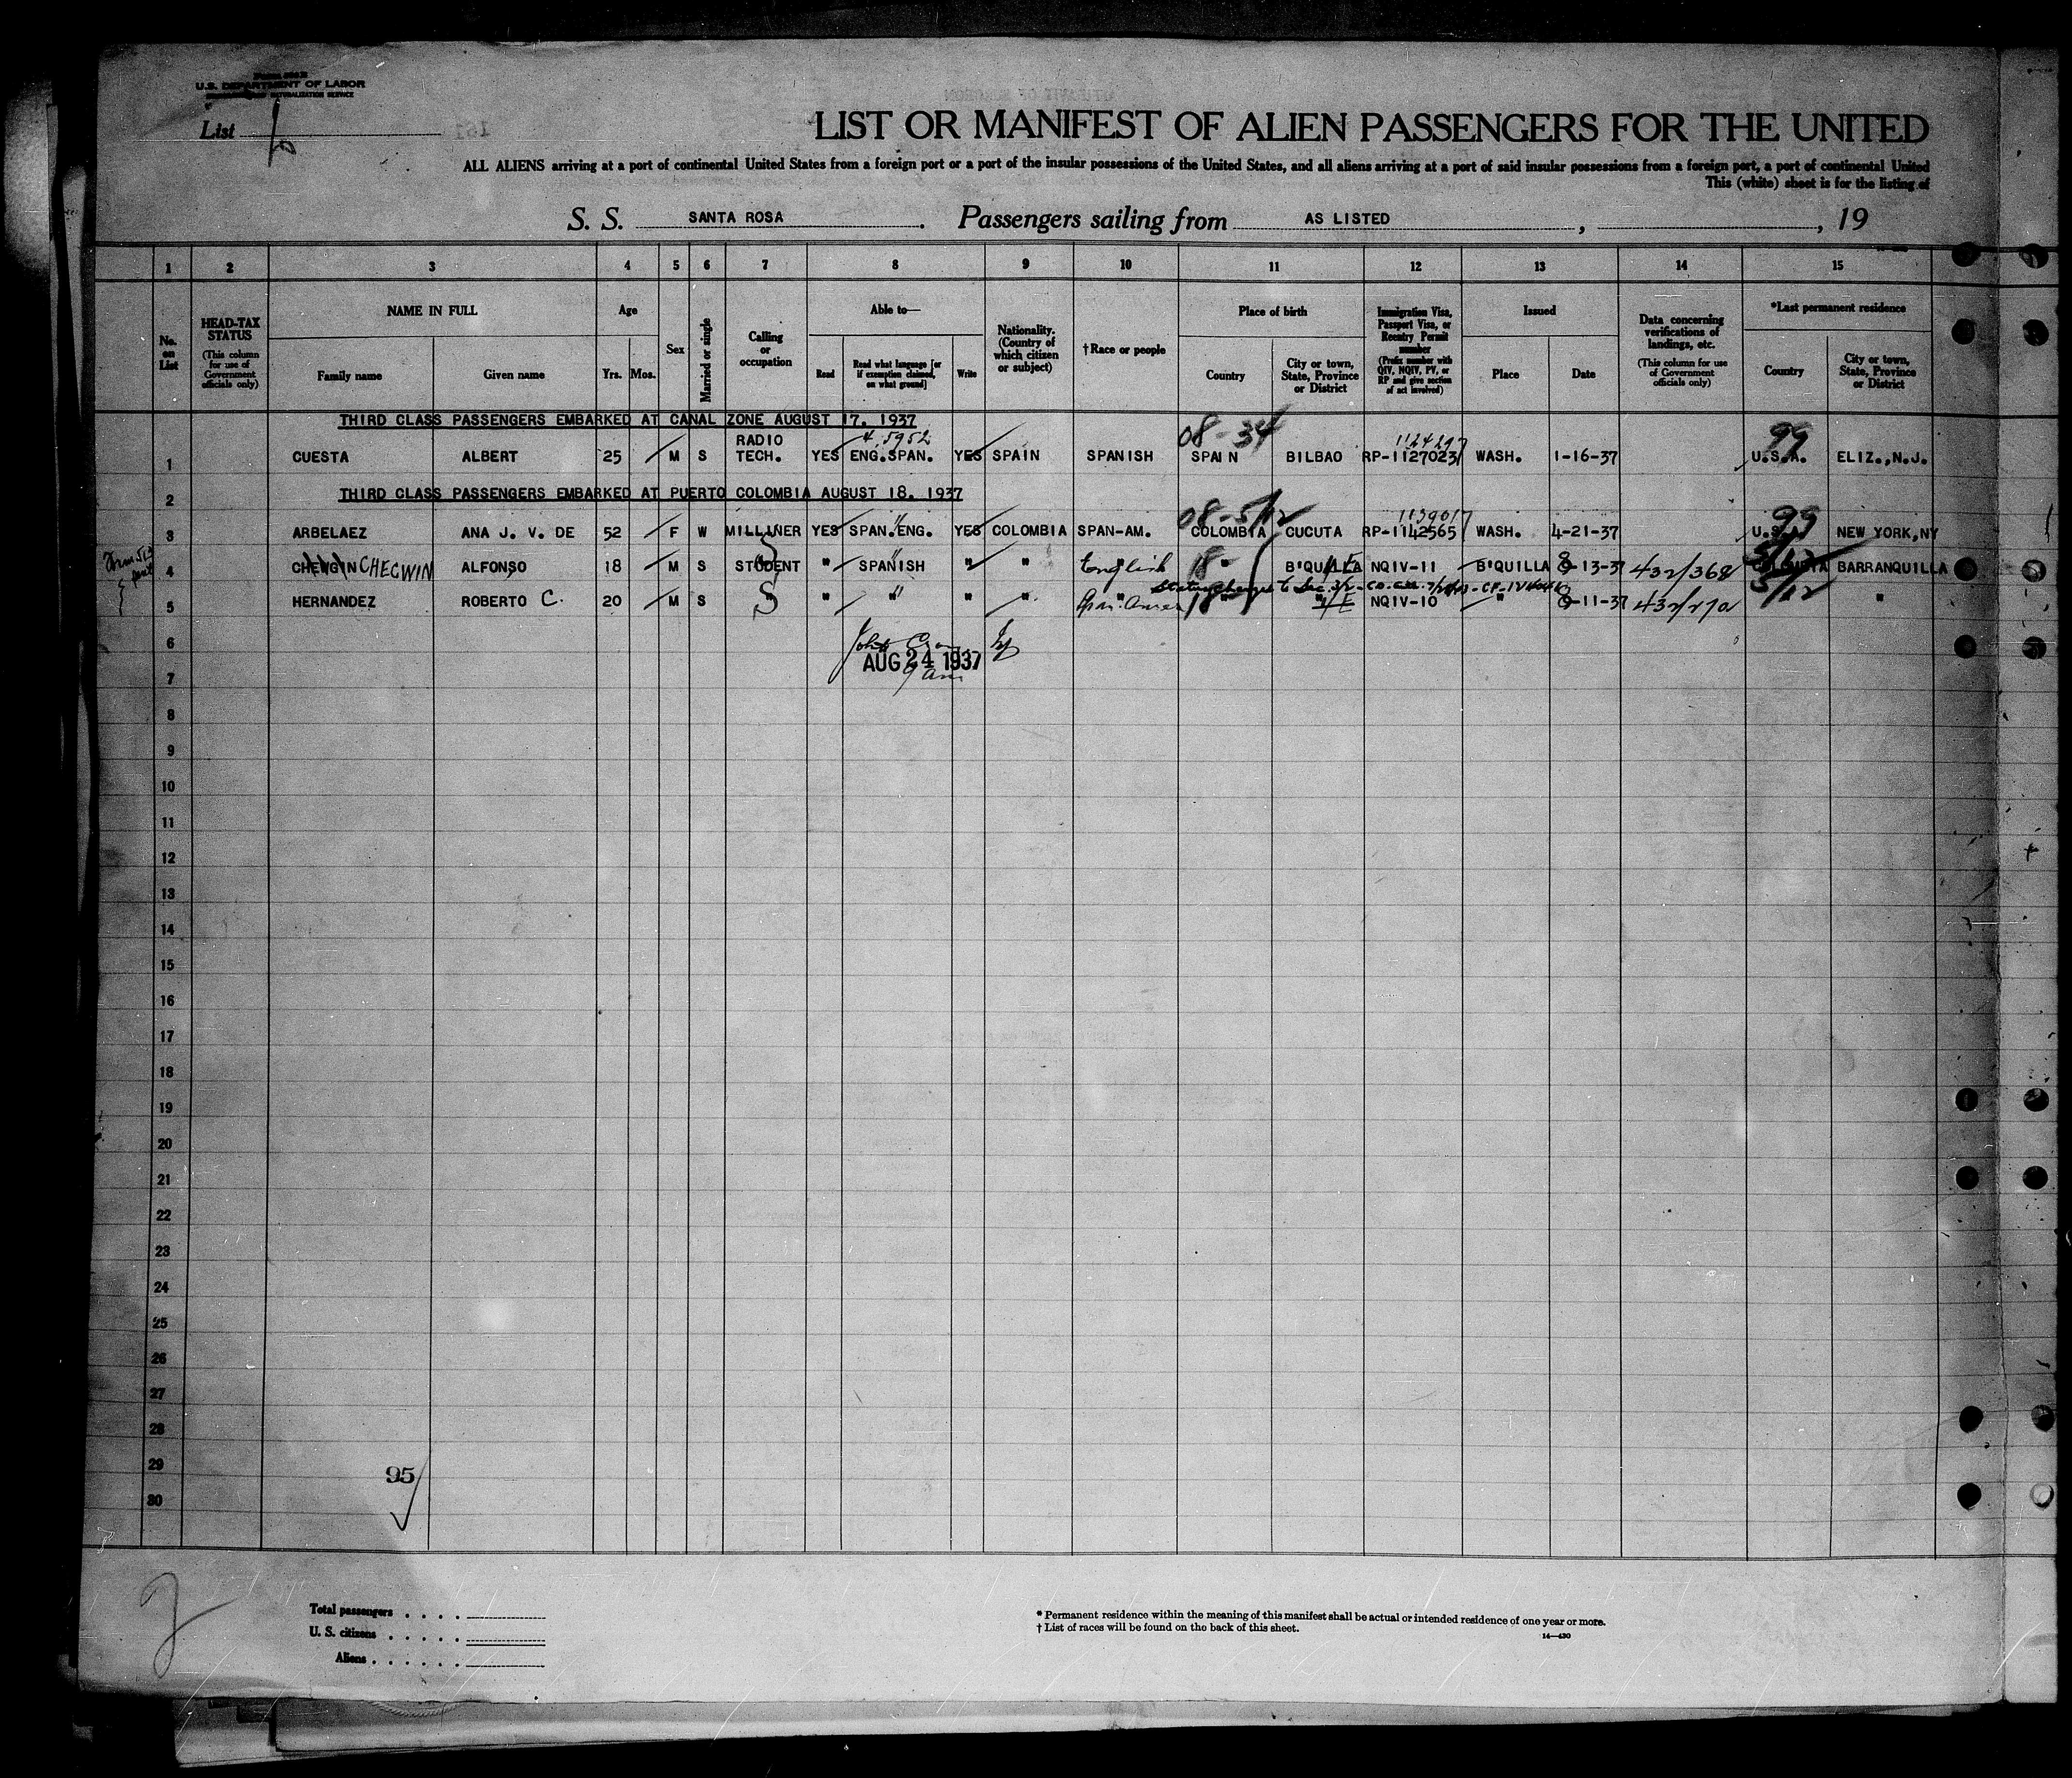 U.S. DEPARTMENT OF LABOR
List
LIST OR MANIFEST OF ALIEN PASSENGERS FOR THE UNITED
ALL ALIENS arriving at a port of continental United States from a foreign port or a port of the insular possessions of the United States, and all aliens arriving at a port of said insular possessions from a foreign port, a port of continental United
This (white) sheet is for the listing of
S. S. SANTA ROSA. Passengers sailing from AS LISTED, , 19
1 2 3 4 5 6 7 8 9 10 11 12 13 14 15
No. on List
HEAD-TAX STATUS (This column for use of Government officials only)
NAME IN FULL
Family name Given name
Age
Yrs. Mos.
Sex
Married or single
Calling or occupation
Able to—
Read
Read what language [or if exemption claimed, on what ground]
Write
Nationality. (Country of which citizen or subject)
†Race or people
Place of birth
Country
City or town, State, Province or District
Immigration Visa, Passport Visa, or Reentry Permit number (Prefix number with QIV, NQIV, PV, or RP and give section of act involved)
Issued
Place Date
Data concerning verifications of landings, etc. (This column for use of Government officials only)
*Last permanent residence
Country
City or town, State, Province or District
THIRD CLASS PASSENGERS EMBARKED AT CANAL ZONE AUGUST 17. 1937
RADIO 4,5952 08-34 1124297 99
1 CUESTA ALBERT 25 M S TECH. YES ENG.SPAN. YES SPAIN SPANISH SPAIN BILBAO RP-1127023 WASH. 1-16-37 U.S.A. ELIZ.,N.J.
2 THIRD CLASS PASSENGERS EMBARKED AT PUERTO COLOMBIA AUGUST 18. 1937
08-5/12 1139017 99
3 ARBELAEZ ANA J. V. DE 52 F W MILLINER YES SPAN.ENG. YES COLOMBIA SPAN-AM. COLOMBIA CUCUTA RP-1142565 WASH. 4-21-37 U.S.A. NEW YORK,NY
4 CHEWGIN CHEGWIN ALFONSO 18 M S STUDENT " SPANISH " " English 18- " B'QUILLA NQIV-11 B'QUILLA 8-13-37 432/368 COLOMBIA 5/12 BARRANQUILLA
5 HERNANDEZ ROBERTO C. 20 M S S " " " " " " NQIV-10 " 8-11-37 432/270 5/12 "
6
AUG 24 1937
7 9 am
8
9
10
11
12
13
14
15
16
17
18
19
20
21
22
23
24
25
26
27
28
29 95
30
Total passengers
U. S. citizens
Aliens
* Permanent residence within the meaning of this manifest shall be actual or intended residence of one year or more.
† List of races will be found on the back of this sheet.
14—430